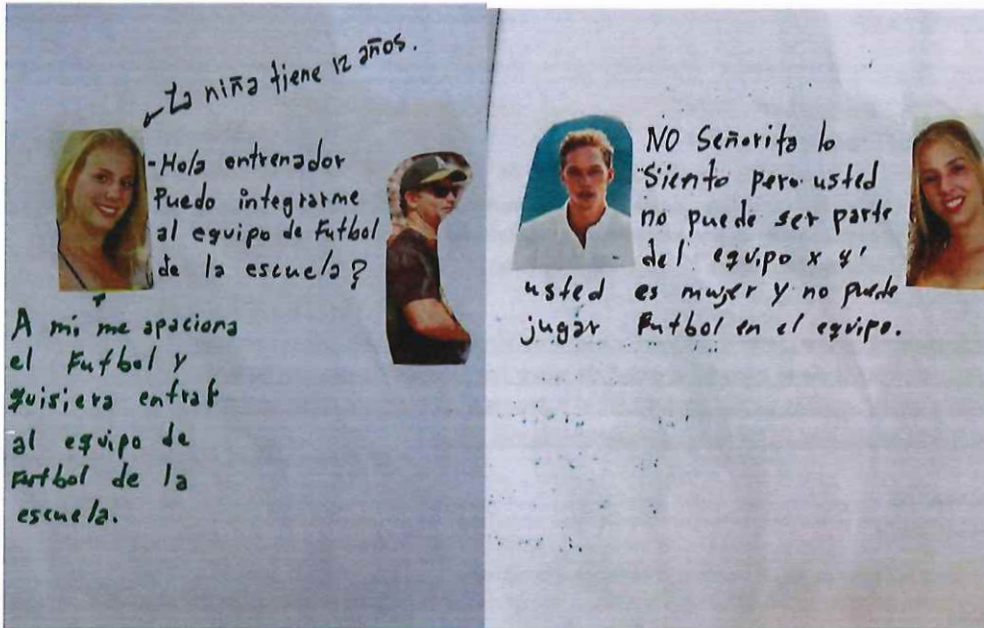 La niña tiene 12 años.
-Hola entrenador
Puedo integrarme
al equipo de Futbol
de la escuela?
A mi me apaciona
el Futbol y
quisiera entrar
al equipo de
Futbol de la
escuela.
NO Señorita lo
Siento pero usted
no puede ser parte
del equipo x q'
usted es mujer y no puede
jugar Futbol en el equipo.